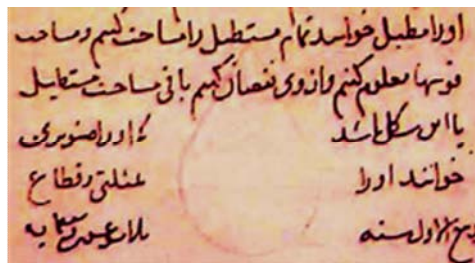 اورا مطبل خوانند تمام مستطیل را مساحت کنیم و مساحت
قوسها معلوم کنیم و از وی نقصان کنیم باقی مساحت مستطیل
یا این شکل باشد که اورا صنوبری
خوانند اورا مثلثی و قطاع
ربع الاول سنه